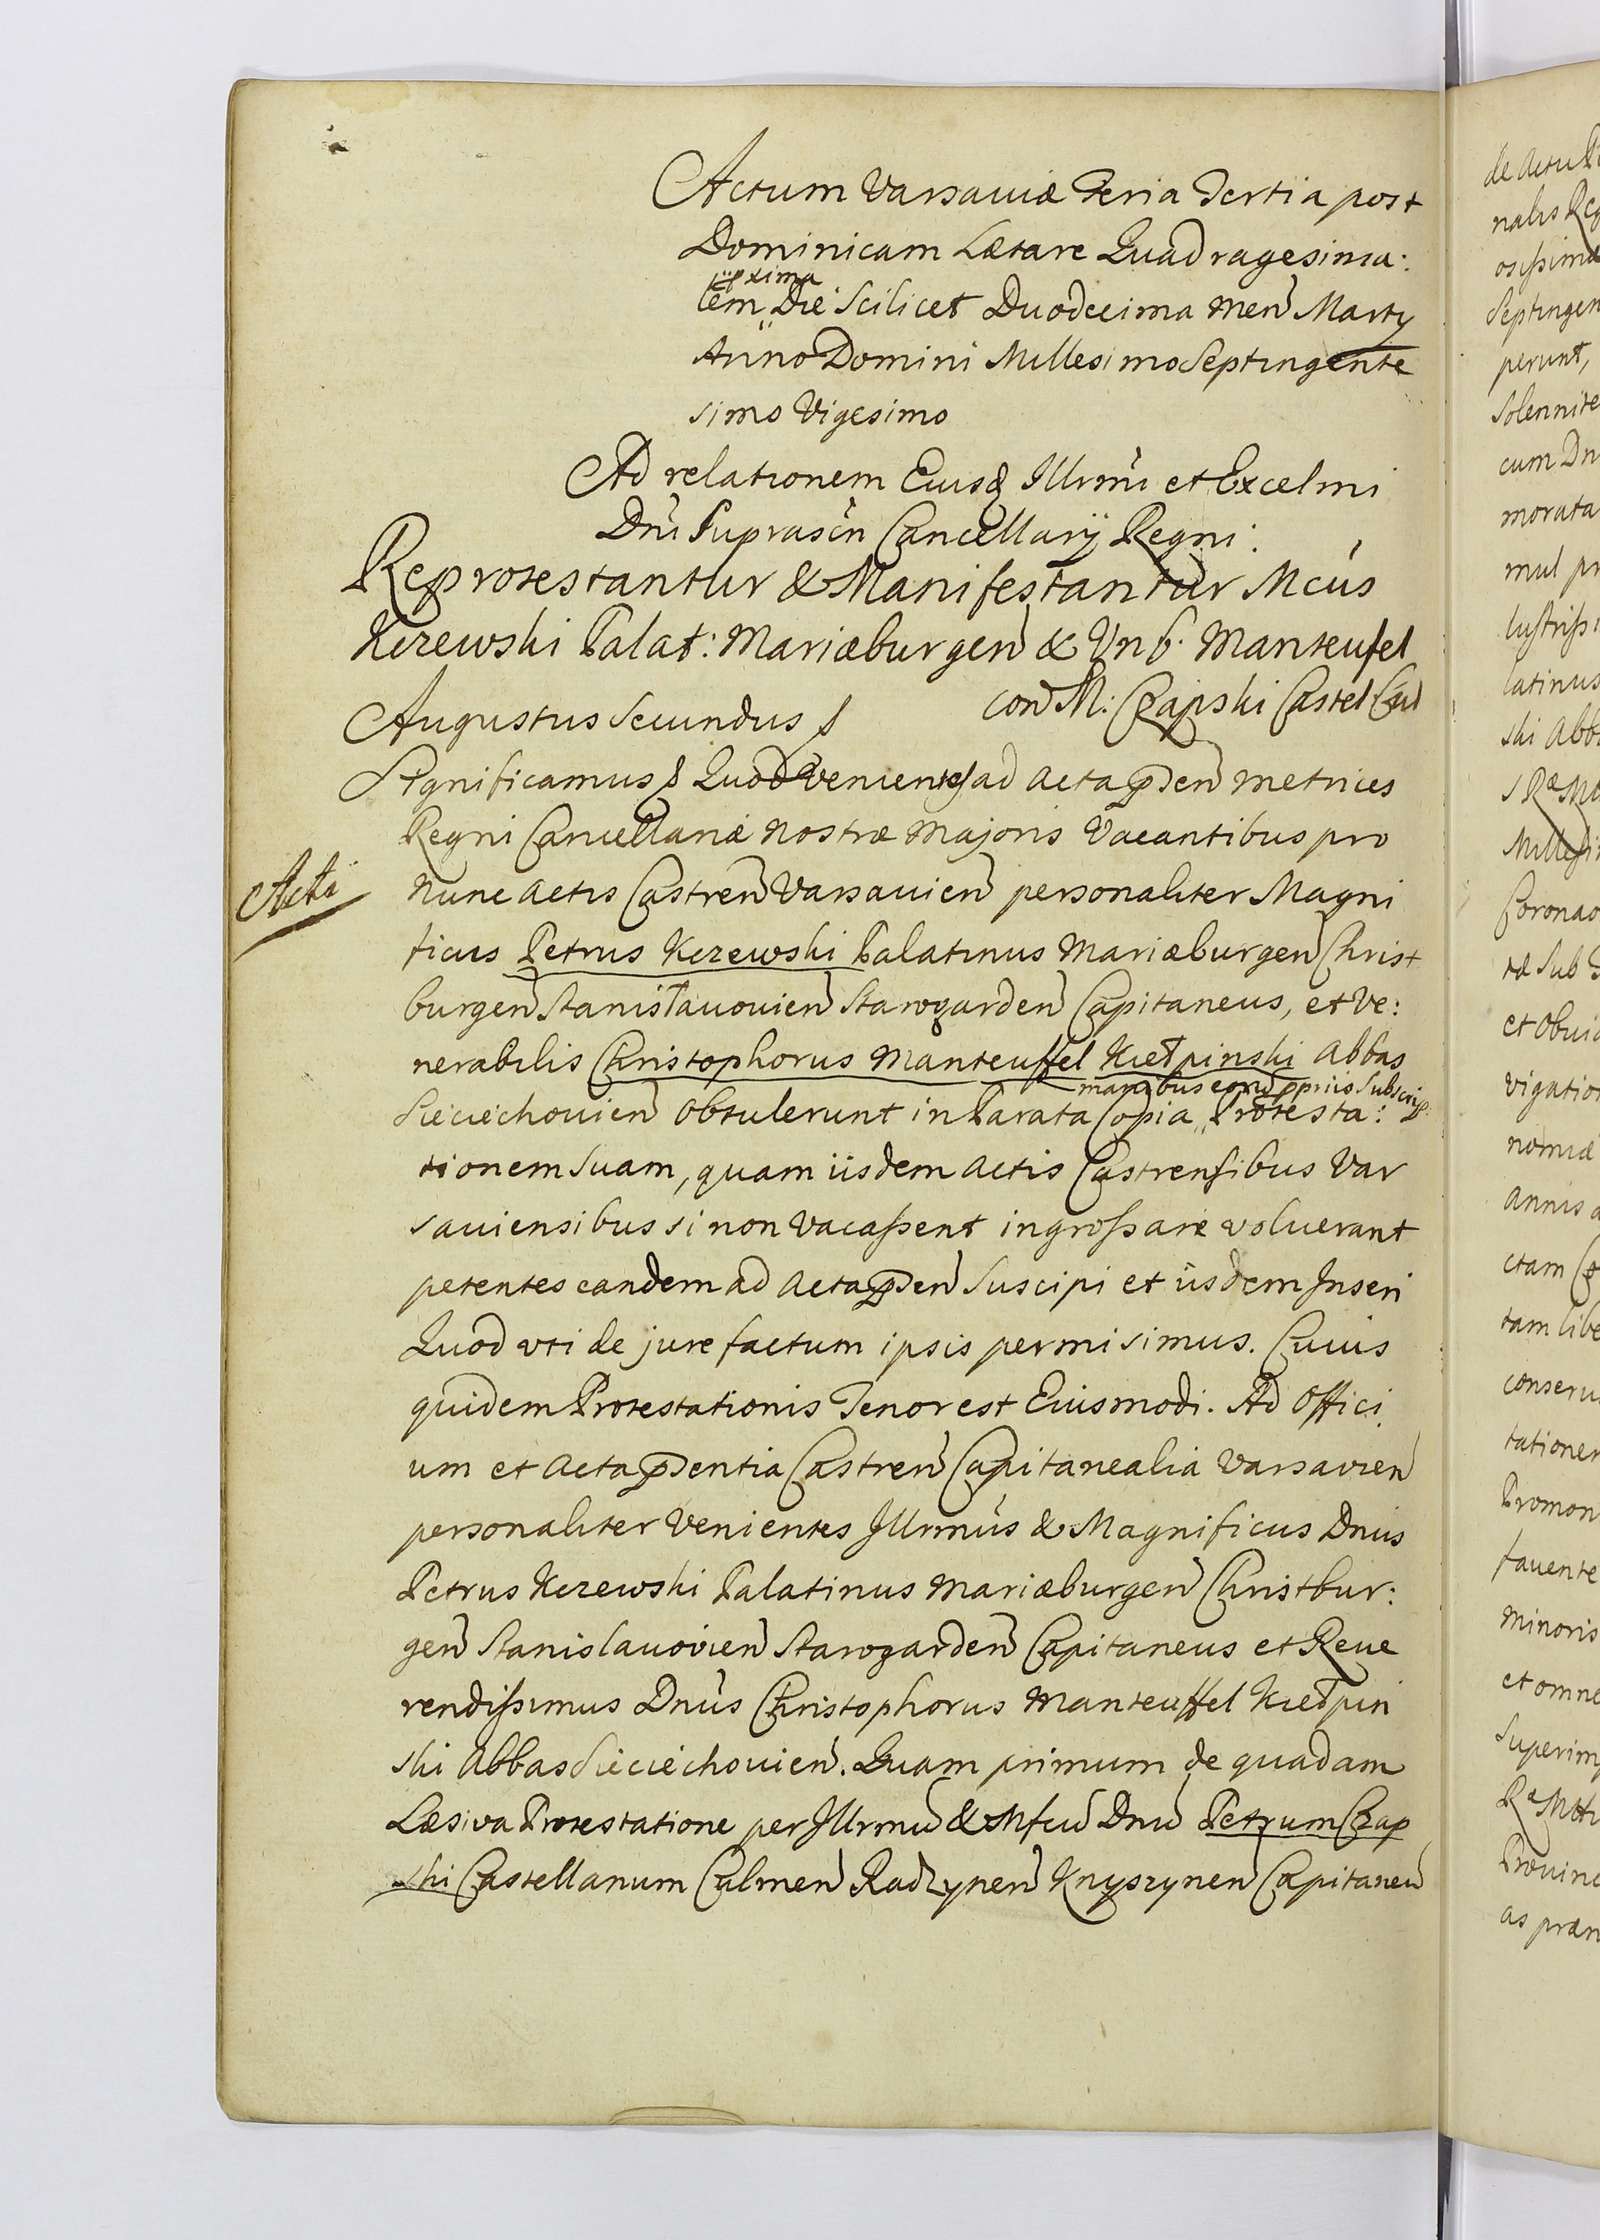 Actum Varsaviæ Feria Tertia post
Dominicam Lætare Quadragesima:
proxima
lem Die Scilicet Duodecima Men Martÿ
Anno Domini Millesimo Septingente
simo Vigesimo
Ad relationem Eiusd Illrmi et Excelmi
Dni Suprascn Cancellarÿ Regni.
Reprotestantur & Manifestantur Mcus
Kczewski Palat: Mariæburgen & Vnb. Manteufel
con M: Czapski Castel Cul
Augustus Secundus
Significamus Quod Venientes ad Acta pnsen Metrices
Regni Cancellariæ Nostræ Majoris Vacantibus pro
Acta
Nunc Actis Castren Varsavien personaliter Magni
ficus Petrus Kczewski Palatinus Mariæburgen Christ
burgen Stanisławovien Starogarden Capitaneus, et Ve:
nerabilis Christophorus Manteuffel Kiełpinski Abbas
manibus eorund ppriis Subscrip
Sieciechovien Obtulerunt in Parata Copia Protesta:
tionem Suam, quam iisdem Actis Castrensibus Var
saviensibus si non Vacassent ingrossare voluerant
petentes eandem ad Acta pnsen Suscipi et iisdem Inseri
Quod vti de jure factum ipsis permisimus. Cuius
quidem Protestationis Tenor est Eiusmodi. Ad Offici
um et Acta pnsentia Castren Capitanealia Varsavien
personaliter Venientes Illrmus & Magnificus Dnus
Petrus Kczewski Palatinus Mariæburgen Christbur:
gen Stanislavovien Starogarden Capitaneus et Reve
rendissimus Dnus Christophorus Manteuffel Kiełpin
ski Abbas Sieciechovien. Quam primum de quadam
Læsiva Protestatione per Illrmu & Mfcu Dnu Petrum Czap
ski Castellanum Culmen Radzynen Knyszynen Capitaneu
de Actu
nalis Reg
osissima
Septingen
perunt,
Solennite
cum Dn
morata
mul pr
lustriss
latinus
ski Abb
Coronao
tæ Sub
et Obvi
vigation
nomiæ
Annis
ctam
tam libe
conseru
tationer
Promon
favente
Minoris
et omne
Superim
Provinc
as præn